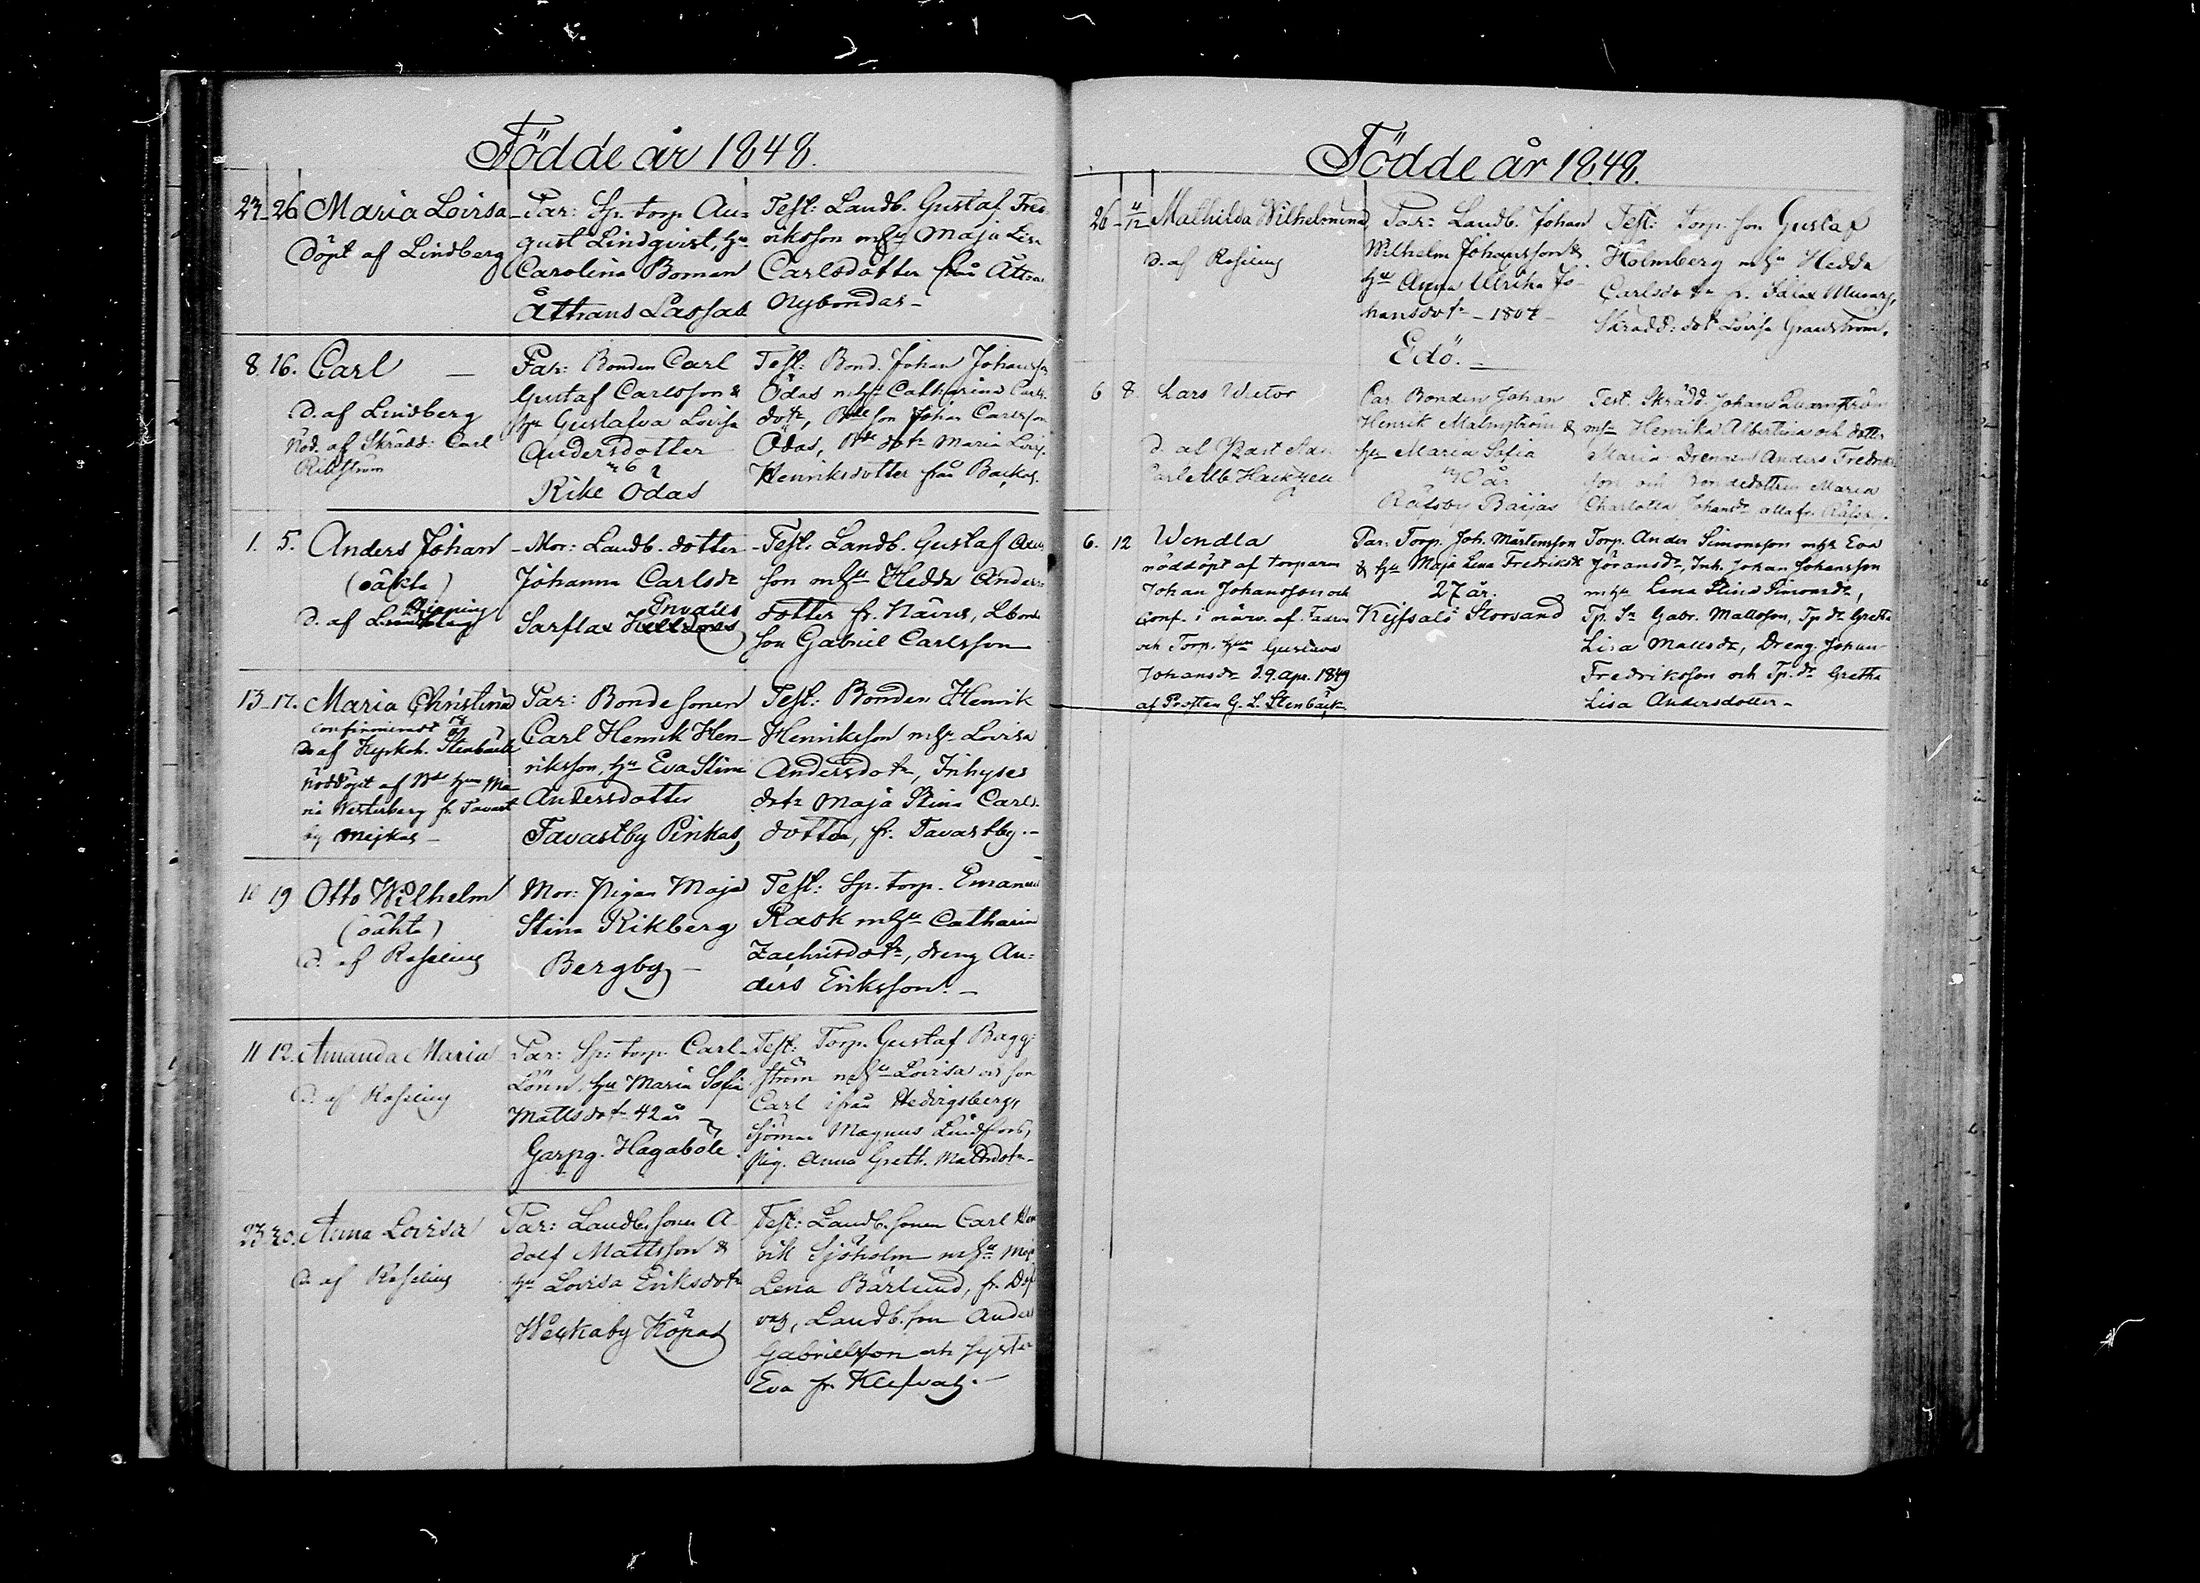 Födde år 1848.
23 26 Maria Lovisa
Döpt af Lindberg
Par: Sp. torp. Au=
gust Lindqvist, hu
Carolina Boman
Åttrans Lassas
Test: Landb. Gustaf Fred
riksson mhu Maja Lisa
Carlsdotter från Åttra
Nybondas
8. 16. Carl
D. af Lindberg
Nöd. af Skrädd: Carl
Par: Bonden Carl
Gustaf Carlsson &
hu Gustafva Lovisa
Andersdotter
26
Rike Ödas
Test: Bond. Johan Johansson
Ödas mhu Catharina Carls
dotr, Bde son Johan Carlsson
Ödas, Bde dotr Maria Lovis.
Henriksdotter från Backas.
1. 5. Anders Johan
(oäkta)
D. af
Mor: Landb. dotter
Johanna Carlsdr
Sarflax
Test: Landb. Gustaf
son mhu Hedda Anders
dotter fr. Näfvis, Lbonde
son Gabriel Carlsson
13 17. Maria Christina
confirmerad
D. af Kyrkoh. Stenbäck
Nöddöpt af Bde hun Ma
ria Westerberg fr. Tavast
by Mejkas
Par: Bondesonen
Carl Henrik Hen-
riksson, hu Eva Stina
Andersdotter
Tavastby Pinkas,
Test: Bonden Henrik
Henriksson mhu Lovisa
Andersdotr, Inhyses
dotr Maja Stina Carls
dotter, fr. Tavastby.
11 19 Otto Wilhelm
(oäkta)
D. af Roseling
Mor: Pigan Maja
Stina Rikberg
Bergby
Test: Sp. torp. Emanuel
Rask mhu Catharina
Zachrisdotr, dreng An=
ders Eriksson.
11 12. Amanda Maria
D. af Roseling
Par: Sp. torp. Carl
Lönn, hu Maria Sofia
Mattsdotr 42 år
Garpg. Hagaböle.
Test: Torp. Gustaf Bagg=
ström mhu Lovisa och son
Carl ifrån Hedvigsberg,
Sjöman Magnus Lindfors,
Pig. Anna Greth. Mattsdotr
23 30. Anna Lovisa
D. af Roseling
Par: Landb. sonen A-
dolf Mattsson &
hu Lovisa Eriksdotr
Weckaby Köpas
Test: Landb. sonen Carl Hen
rik Sjöholm mhu Maja
Lena Bärlund, fr.
Landb. son Anders
Gabrielsson och syster
Eva fr.
Födde år 1848.
26 4/12 Mathilda Wilhelmina
D. af Roseling
Par: Landb. Johan
Wilhelm Johansson &
hu Anna Ulrika Jo-
hansdotr
Edö.
Test: Torp. son Gustaf
Holmberg mhu Hedda
Carlsdotr fr.
Skrädd: dotr Lovisa Granström.
6 8. Lars Victor
D. af Past Adj
Carl Alb Hackzell
Par Bonden Johan
Henrik Malmström &
hu Maria Sofia
40 år
Räfsby Baijas
Test Skrädd. Johan Qvarnström
mhu Henrika Albertina och dotter
Maria Drengen Anders Fredriks
son och Bondedottern Maria
Charlotta Johansdr alla fr. Räfsby.
6. 12 Wendla
nöddöpt af torparen
Johan Johansson och
Conf. i närv. af Fadren
och Torp. hun Gustava
Johansdr d. 9. Apr. 1849
af Prosten G. L. Stenbäck
Par: Torp. Joh. Mårtensson
& hu Maja Lena Fredriksdr
27 år.
Storsand
Torp. Ander Simonsson mhu Eva
Jöransdr, Inh. Johan Johansson
mhu Lena Stina Simonsdr,
Tp. Sn Gabr. Mattsson, Tp dr Greta
Lisa Mattsdr, Dreng Johan
Fredriksson och Tp. dr Gretha
Lisa Andersdotter